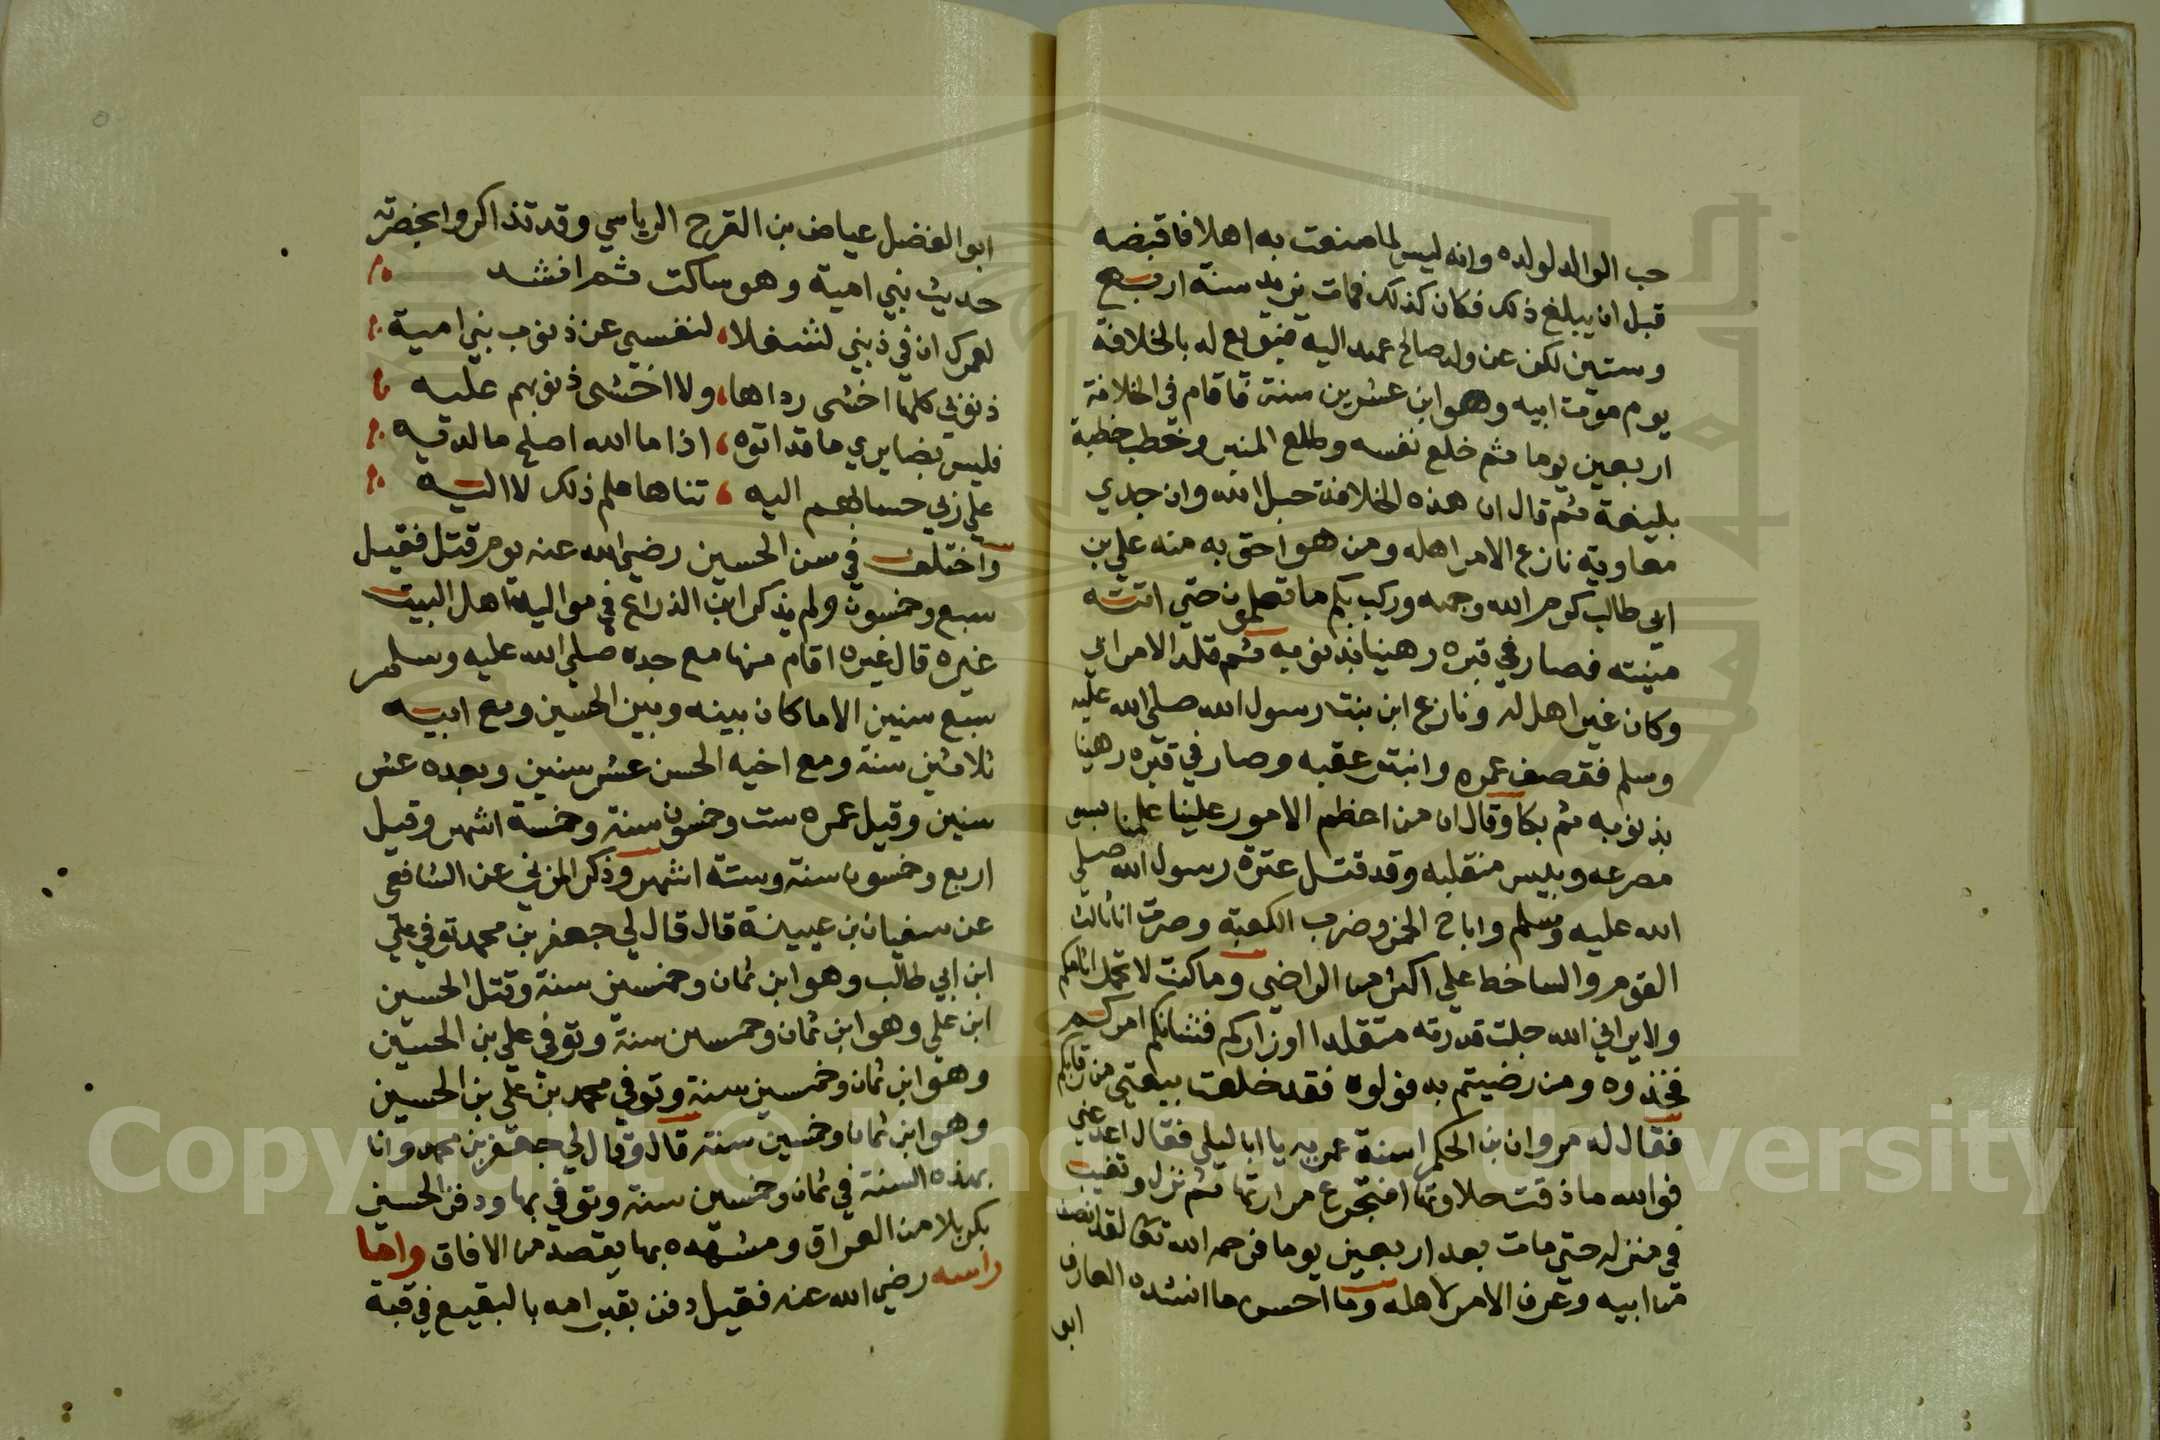 حب الوالد لولده وانه ليس لما صنعت به اهلا فاقبضه
قبل ان يبلغ ذلك فكان كذلك فمات يزيد سنة اربع
وستين لكن عن ولد صالح عهد اليه فبويع له بالخلافة
يوم موت ابيه وهو ابن عشرين سنة فاقام في الخلافة
اربعين يوما ثم خلع نفسه وطلع المنبر وخطب خطبة
بليغة ثم قال ان هذه الخلافة حبل الله وان جدي
معاوية نازع الامر اهله ومن هو احق به منه علي بن
ابي طالب كرم الله وجهه وركب بكم ما تعلمون حتي اتته
منيته فصار في قبره رهينا بذنوبه ثم قلد الامر ابي
وكان غير اهل له ونازع ابن بنت رسول الله صلي الله عليه
وسلم فقصف عمره وانبتر عقبه وصار في قبره رهينا
بذنوبه ثم بكا وقال ان من اعظم الامور علينا علمنا بسو
مصرعه وبيس منقلبه وقد قتل عترة رسول الله صلي
الله عليه وسلم واباح الخمر وضرب الكعبة وصرت انا ثالث
القوم والساخط علي اكثر من الراضي وما كنت لا تحمل اثامكم
ولا يراني الله جلت قدرته متقلدا اوزاركم فشانكم امركم
فخذوه ومن رضيتم به فولوه فقد خلعت بيعتي من رقابكم
فقال له مروان بن الحكم اسنة عمرية يا ابا ليلي فقال اعد عني
فوالله ما ذقت حلاوتها افتجرع مرارتها ثم نزل وتغيب
في منزله حتي مات بعد اربعين يوما فرحمه الله تعالى لقد انصف
من ابيه وعرف الامر لاهله وما احسن ما انشده العارف
ابو
ابو الفضل عياض بن الفرج الرياسي وقد تذاكروا بحضرته
حديث بني امية وهو ساكت ثم انشد
لعمرك ان في ذنبي لشغلا، لنفسي عن ذنوب بني امية
ذنوبي كلها اخشى رداها، ولا اخشى ذنوبهم عليه
فليس بضايري ما قد اتوه، اذا ما الله اصلح ما لديه
علي ربي حسابهم اليه، تناها علم ذلك لا اليه
واختلف في سن الحسين رضي الله عنه يوم قتل فقيل
سبع وخمسون ولم يذكر ابن الذراع في مواليد اهل البيت
غيره قال غيره اقام منها مع جده صلي الله عليه وسلم
سبع سنين الا ما كان بينه وبين الحسين ومع ابيه
ثلاثين سنة ومع اخيه الحسن عشر سنين وبعده عشر
سنين وقيل عمره ست وخمسون سنة وخمسة اشهر وقيل
اربع وخمسون سنة وستة اشهر وذكر المزني عن الشافعي
عن سفيان بن عيينة قال قال لي جعفر بن محمد توفي علي
ابن ابي طالب وهو ابن ثمان وخمسين سنة وقتل الحسين
ابن علي وهو ابن ثمان وخمسين سنة وتوفي علي بن الحسين
وهو ابن ثمان وخمسين سنة وتوفي محمد بن علي بن الحسين
وهو ابن ثمان وخمسين سنة قال وقال لي جعفر بن محمد وانا
بهذه السنة في ثمان وخمسين سنة وتوفي بها ودفن الحسين
بكربلا من العراق ومشهده بها يقصد من الافاق واما
راسه رضي الله عنه فقيل دفن بقبر امه بالبقيع في قبة